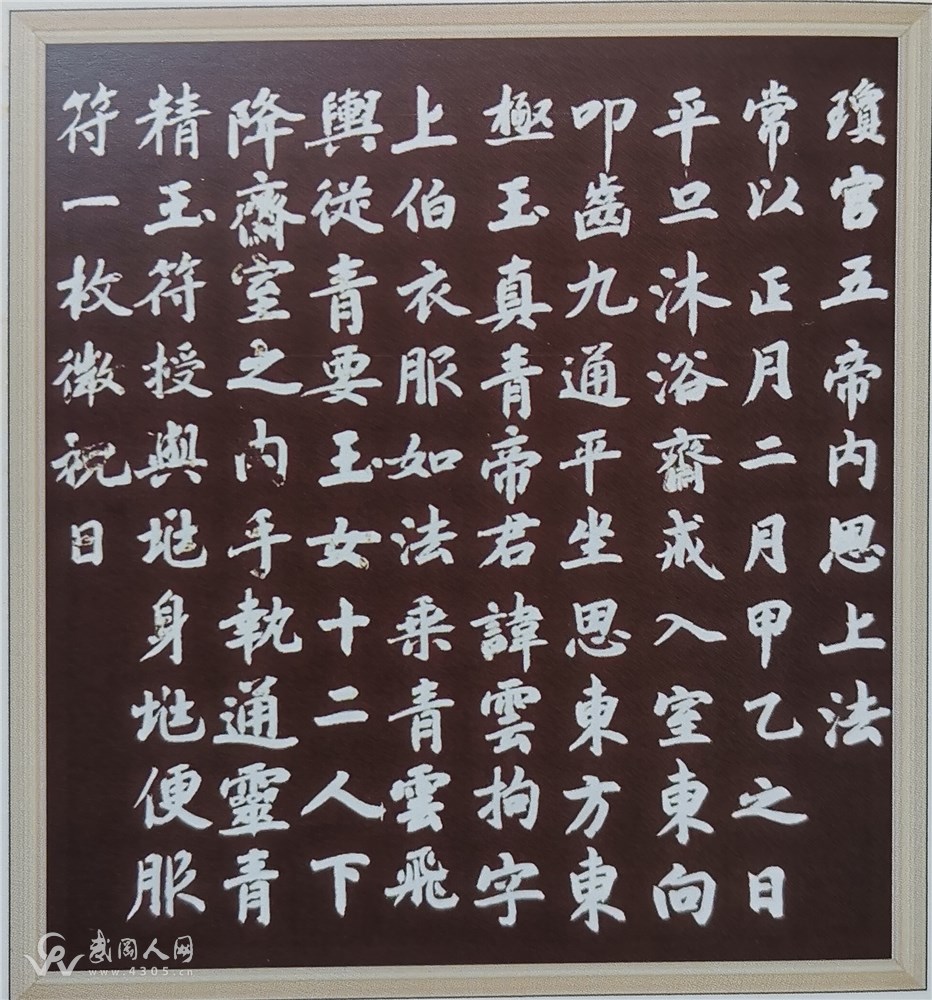 瓊宮五帝内思上法
常以正月二月甲乙之日
平旦沐浴齋戒入室東向
叩齒九通平坐思東方東
極玉真青帝君諱雲拘字
上伯衣服如法乘青雲飛
輿從青要玉女十二人下
降齋室之内手執通靈青
精玉符授與兆身兆便服
符一枚微祝曰
武岡人网
www.4305.cn